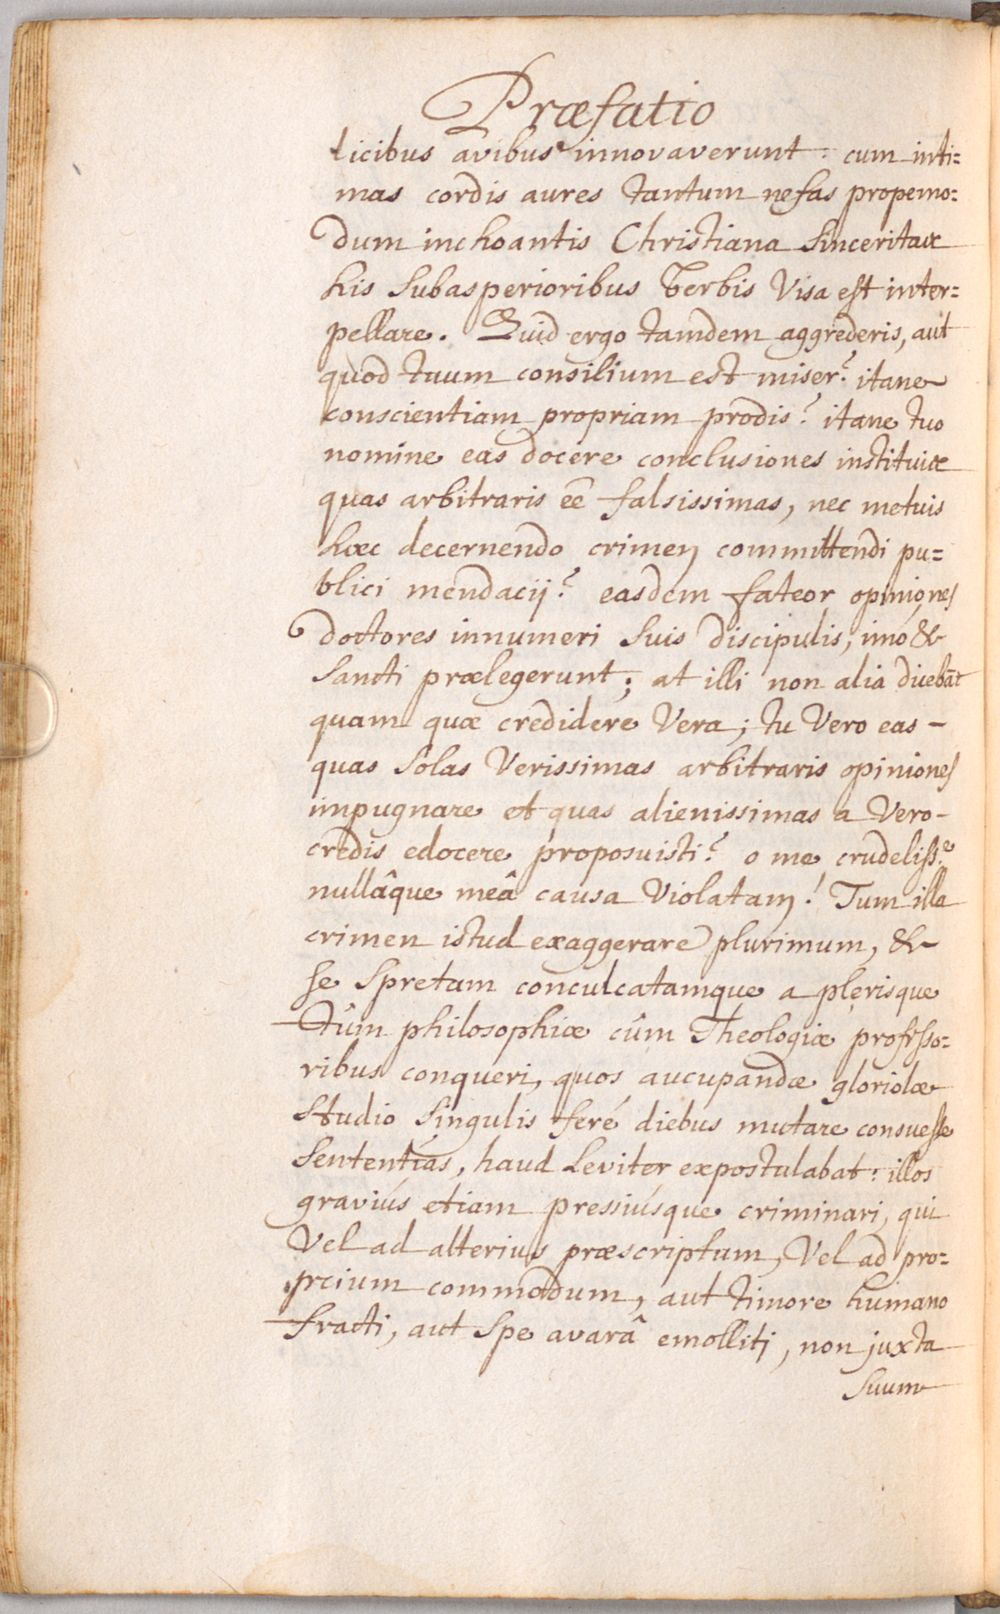 Præfatio
licibus avibus innovaverunt : cum inti=
mas cordis aures tantum nefas propemo=
dum inchoantis Christiana sinceritas
his subasperioribus verbis visa est inter=
pellare. Quid ergo tamdem aggrederis, aut
quod tuum consilium est miser? itane
conscientiam propriam prodis? itane tuo
nomine eas docere conclusiones instituis
quas arbitraris eē falsissimas, nec metuis
hæc decernendo crimen committendi pu=
blici mendacij? easdem fateor opiniones
doctores innumeri suis discipulis, imó &
sancti prælegerunt; at illi non aliá dicebāt
quam quæ credidere vera; tu vero eas –
quas solas verissimas arbitraris opiniones
impugnare et quas alienissimas a vero –
credis edocere proposuisti? o me crudeliss.e
nullâque meâ causa violatam! Tum illa
crimen istud exaggerare plurimum, &
se spretam conculcatamque a plerisque
tûm philosophiæ cûm Theologiæ professo=
ribus conqueri, quos aucupandæ gloriolæ
studio singulis feré diebus mutare consuesse
sententias, haud leviter expostulabat : illos
graviús etiam pressiúsque criminari, qui
vel ad alterius præscriptum, vel ad pro=
prcium commodum, aut timore humano
fracti, aut spe avarâ emolliti, non juxta
suum